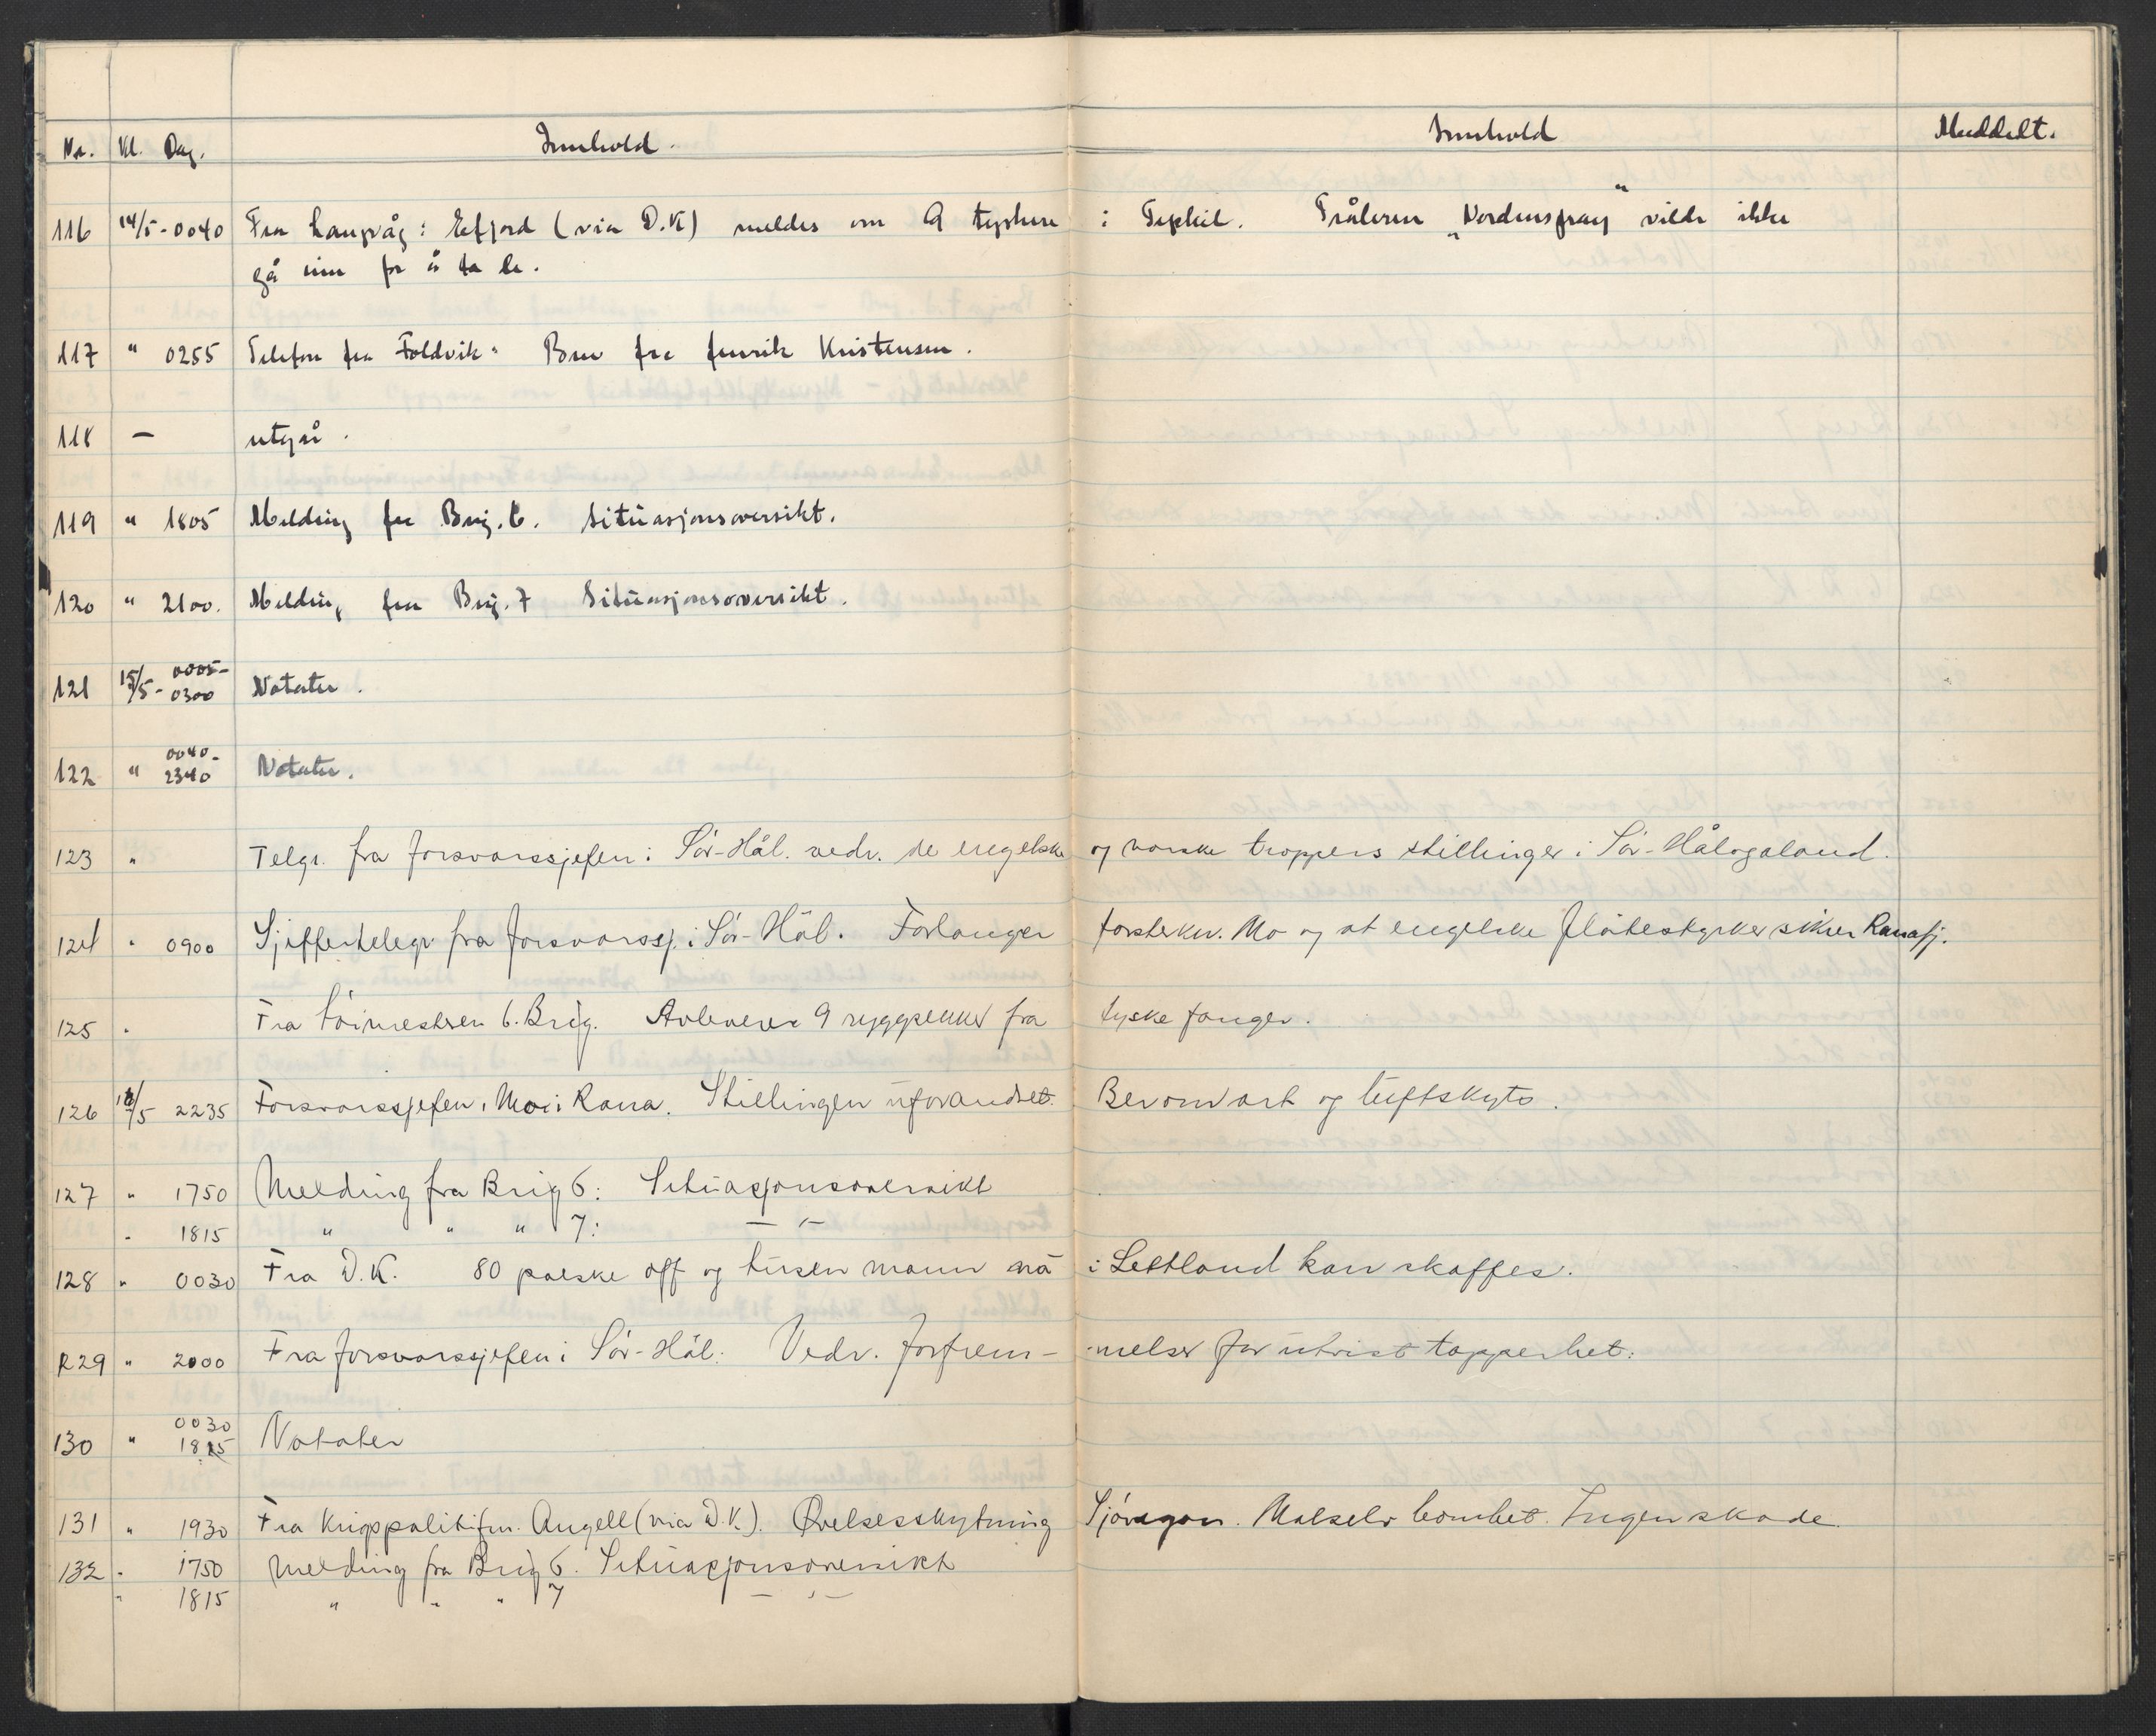 Nr. Kl. Dag. Innhold. Innhold Meddelt.
116 14/5 - 0040 Fra Laupvåg: Efjord (via D.K) meldes om 9 tyskere i Tepkil. Tråleren "Nordenspray" vilde ikke
gå inn for å ta de.
117 " 0255 Telefon fra Foldvik: Brev fra fenrik Kristensen.
118 — utgår.
119 " 1805 Melding fra Brig. 6. Situasjonsoversikt.
120 " 2100. Melding fra Brig. 7 Situasjonsoversikt.
121 15/5 - 0005-0300 Notater.
122 " 0040-2340 Notater.
123 " Telgr. fra forsvarssjefen i Sör-Hål. vedr. de engelske og norske troppers stillinger i Sör-Hålogaland.
124 " 0900 Sjiffertelegr fra forsvarssj. i Sör-Hål. Forlanger forsterkn. Mo og at engelske flåtestyrker sikrer Ranafj.
125 " Fra 6. Brig. Avleverer 9 ryggsekker fra tyske fanger.
126 16/5 2235 Forsvarssjefen, Mo i Rana. Stillingen uforandret. Ber om art og luftskyts.
127 " 1750 Melding fra Brig 6: Situasjonsoversikt
" 1815 " " " 7: — " —
128 " 0030 Fra D.K. 80 polske off og tusen mann nå i Lettland kan skaffes.
R29 " 2000 Fra forsvarssjefen i Sör-Hål: Vedr. forfrem- -melser for utvist tapperhet.
130 " 0030 1815 Notater
131 " 1930 Fra Krigspolitifm. Angell (via D.K.). Øvelsesskytning Sjövegan. Målselv bombet. Ingen skade.
132 " 1750 Melding fra Brig 6. Situasjonsoversikt
" 1815 " " " 7 — " —